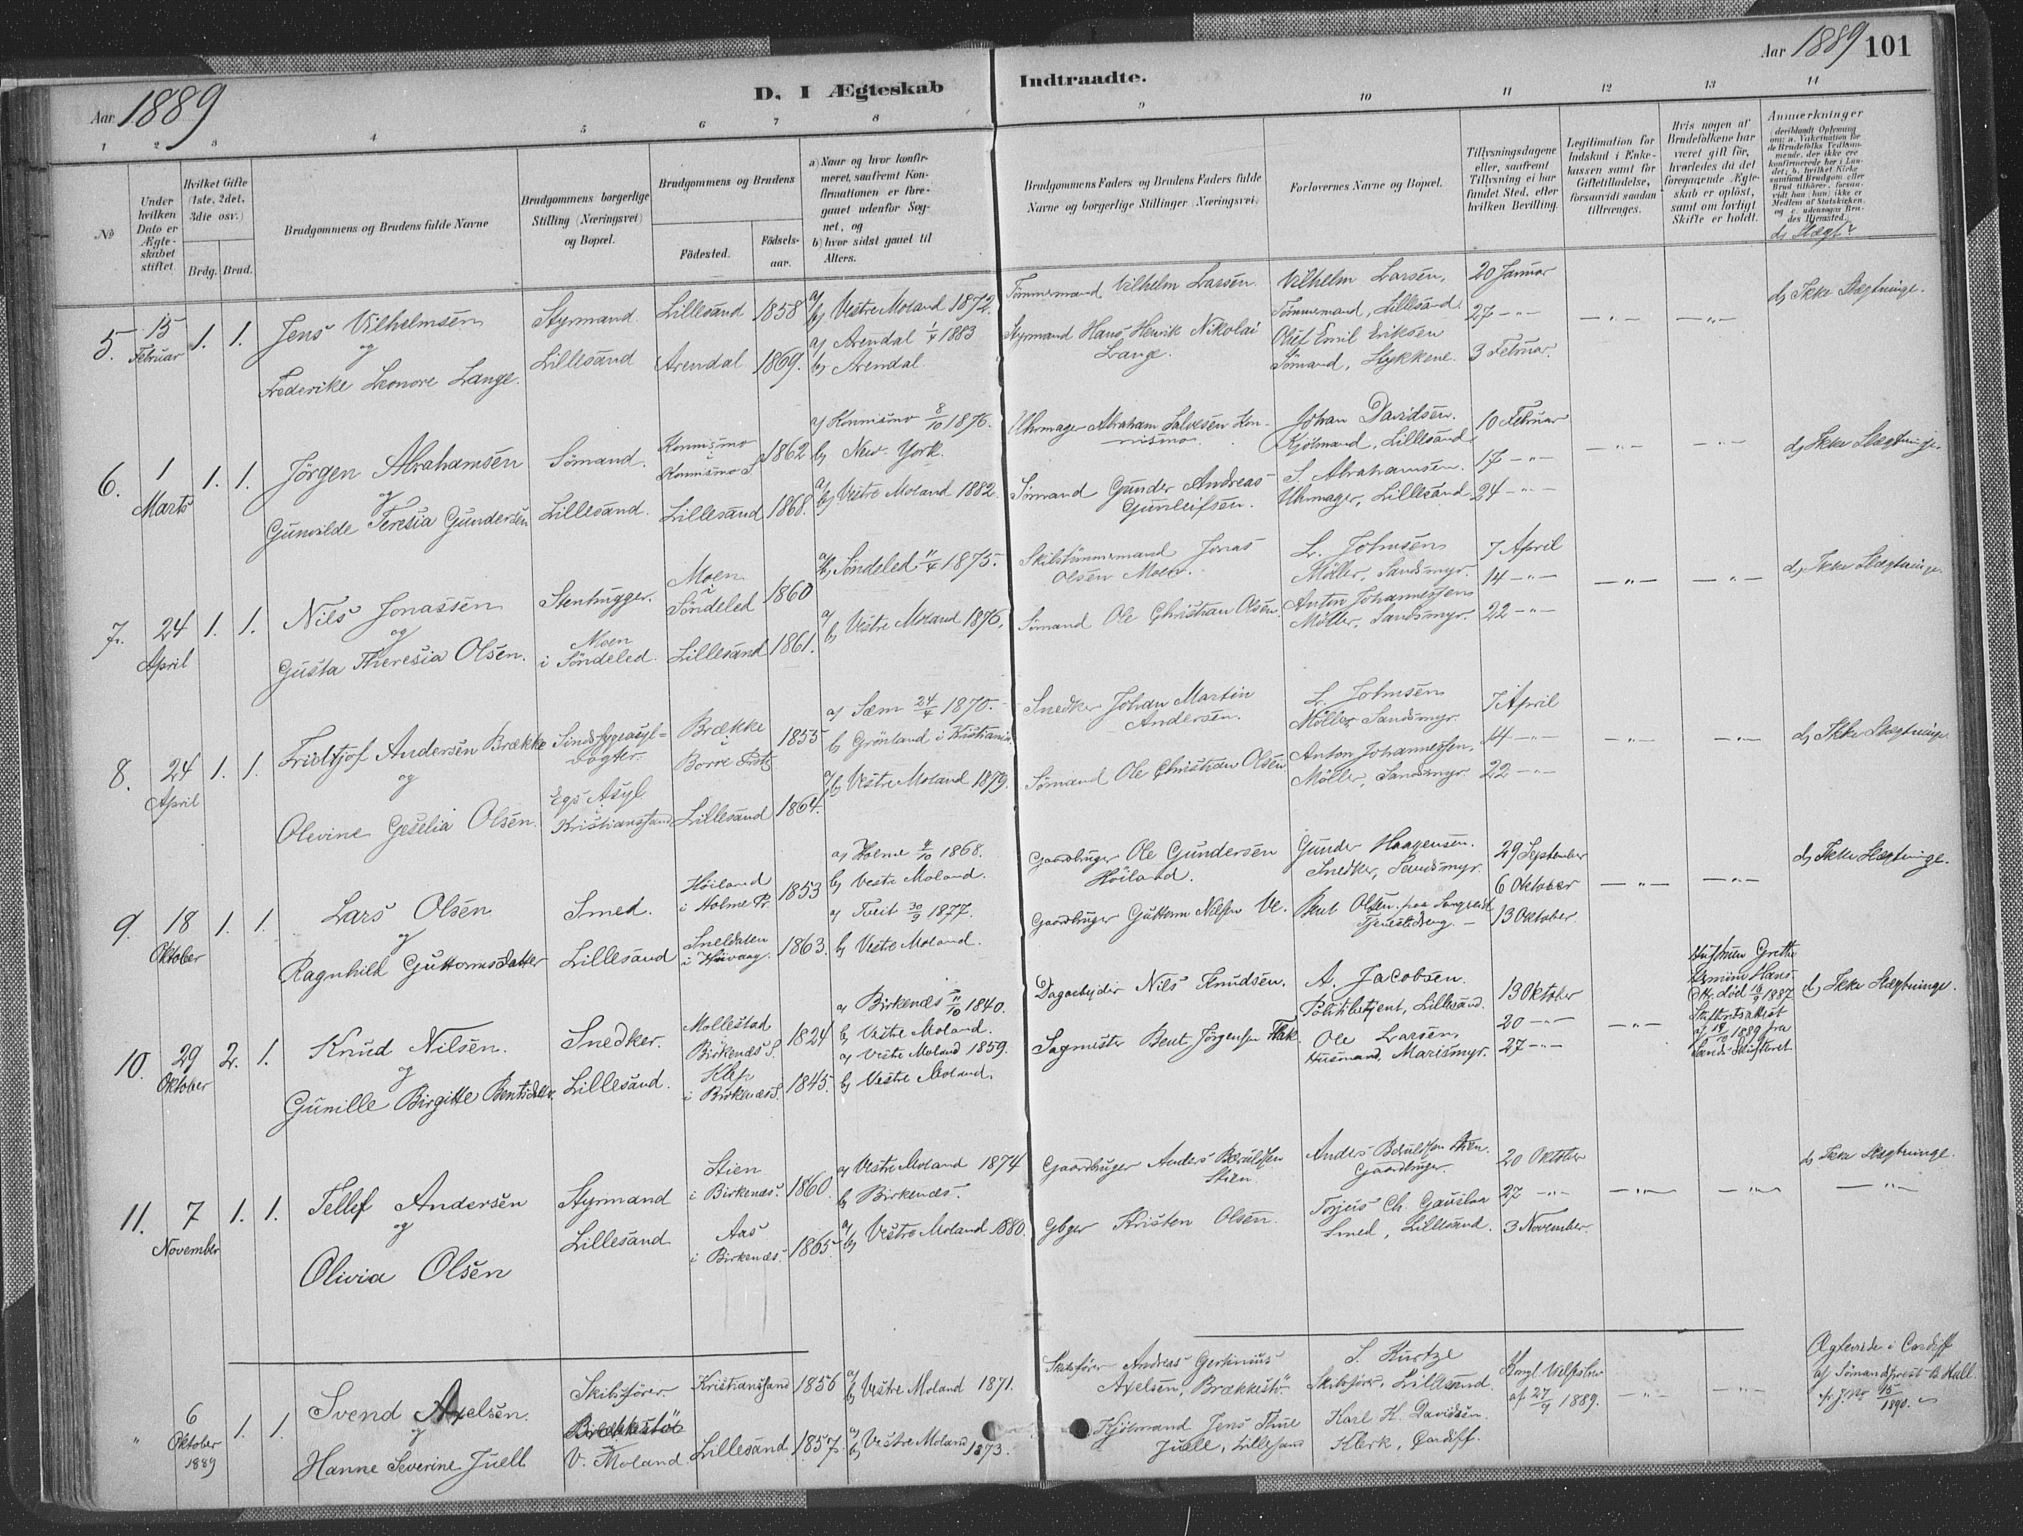 Aar 1889
D. I Ægteskab Indtraadte.
Aar 1889 101
1 2 3 4 5 6 7 8 9 10 11 12 13 14
No
Under hvilken Dato er Ægteskabet stiftet
Hvilket Gifte (1ste, 2det, 3die osv.)
Brdg. Brud.
Brudgommens og Brudens fulde Navne
Brudgommens borgerlige Stilling (Næringsvei) og Bopæl.
Brudgommens og Brudens
Födested.
Födselsaar.
a) Naar og hvor konfirmeret, saafremt Konfirmationen er foregaaet udenfor Sognet, og
b) hvor sidst gaaet til Alters.
Brudgommens Faders og Brudens Faders fulde Navne og borgerlige Stillinger (Næringsvei)
Forlovernes Navne og Bopæl.
Tillysningsdagene eller, saafremt Tillysning ei har fundet Sted, efter hvilken Bevilling.
Legitimation for Indskud i Enkekassen samt for Giftetilladelse, forsaavidt saadan tiltrænges.
Hvis nogen af Brudefolkene har været gift för, hvorledes da det foregaaende Ægteskab er oplöst, samt om lovligt Skifte er holdt.
Anmærkninger
d) Slægt?
5. 15 Februar 1. 1.
Jens Vilhelmsen
og
Frederike Leonore Lange.
Styrmand
Lillesand
Lillesand 1858
Arendal 1869.
a/b) Vestre Moland 1872.
a) Arendal 1/4 1883
b) Arendal.
Tömmermand Vilhelm Larsen
Styrmand Hans Henrik Nikolai Lange.
Vilhelm Larsen,
Tömmermand, Lillesand.
Olaf Emil Eriksen
Sömand, Stykkene.
20 Januar
27 -"-
3 Februar.
-"- -"-
d) Ikke Slægtninge.
6. 1 Marts 1. 1.
Jörgen Abrahamsen
og
Gunvilde Teresia Gundersen
Sömand.
Lillesand.
Konnismo
Konnismo S 1862
Lillesand 1868.
a) Konnismo 8/10 1876.
b) New-York.
a/b) Vestre Moland 1882.
Uhrmager Abraham Salvesen Konnismo.
Sömand Gunder Andreas Gunleifsen.
Johan Davidsen.
Kjölmand, Lillesand
S. Abrahamsen.
Uhrmager, Lillesand
10 Februar
17 -"-
24 -"-
-"- -"-
d) Ikke Slægtninge.
7. 24 April 1. 1.
Nils Jonassen
og
Gusta Theresia Olsen.
Stenhugger.
Moen
i Söndeled.
Moen
i
Söndeled 1860
Lillesand 1861.
a/b) Söndeled 11/4 1875.
a/b) Vestre Moland 1876.
Skibstömmermand Jonas Olsen Moen.
Sömand Ole Christian Olsen.
L. Johnsen
Møller, Sandsmyr.
Anton Johannessen
Møller, Sandsmyr.
7 April
14 -"-
22 -"-
-"- -"-
d) Ikke Slægtninge.
8. 24 April 1. 1.
Fridtjof Andersen Brække
og
Olevine Geselia Olsen.
Sindssygeasyl=
vogter.
Egs Asyl
Kristianssand
Brække
i
Borre Prstg 1855
Lillesand 1864.
a) Sæm 24/4 1870.
b) Grönland i Kristiania.
a/b) Vestre Moland 1879.
Snedker Johan Martin Andersen.
Sömand Ole Christian Olsen
L. Johnsen
Møller, Sandsmyr.
Anton Johannessen,
Møller, Sandsmyr.
7 April
14 -"-
22 -"-
-"- -"-
d) Ikke Slægtninge
9. 18 Oktober 1. 1.
Lars Olsen
og
Ragnhild Guttormsdatter
Smed.
Lillesand
Höiland
i Holme Pr. 1853
Sneldalen
i Höivaag. 1863.
a) Holme 4/10 1868.
b) Vestre Moland.
a) Tveit 30/9 1877.
b) Vestre Moland.
Gaardbruger Ole Gundersen Höiland.
Gaardbruger Guttorm Nilsen Ve.
Gunder Haagensen.
Snedker, Sandsmyr.
Olsen
29 September
6 Oktober
13 Oktober.
-"- -"-
d) Ikke Slægtninge.
10. 29 Oktober 2. 1.
Knud Nilsen.
og
Gunille Birgitte Bentsdatter.
Snedker.
Lillesand.
Mollestad
Birkenæs S. 1824
Klep
i Birkenæs S. 1845.
a) Birkenæs 11/10 1840.
b) Vestre Moland.
a) Vestre Moland 1859.
b) Vestre Moland.
Dagarbejder Nils Knudsen.
Sagmester Bent Jörgensen Flak
A. Jacobsen.
Politibetjent, Lillesand.
Ole Larsen
Husmand, Marismyr.
13 Oktober
20 -"-
27 -"-
-"-
Hustruen Grethe
Hans
Dtr. död 16/9 1887
Skifteretsattest
af 18/10 1889 fra
Sands Skifteret
d) Ikke Slægtninge.
11. 7 November 1. 1.
Tellef Andersen
og
Olivia Olsen
Styrmand
Lillesand
Stien
i Birkenæs. 1860.
Aas
i Birkenæs. 1865.
a) Vestre Moland 1874
b) Birkenæs.
a/b) Vestre Moland 1880.
Gaardbruger Anders Berulfsen Stien
Gbger Kristen Olsen.
Anders Berulfsen Stien.
Gaardbruger.
Torjus Ch. Gauslaa
Smed, Lillesand.
20 Oktober
27 -"-
3 November.
-"- -"-
d) Ikke Slægtninge.
-"-
" 6 Oktober 1889 1. 1.
Svend Axelsen.
og
Hanne Severine Juell
Skibsförer
Brækkestö
V. Moland
Kristianssand 1856
Lillesand 1857.
a/b) Vestre Moland 1871.
a/b) Vestre Moland 1873.
Skibsförer Andreas Gertinius Axelsen, Brækkestö.
Kjölmand Jens Thue Juell, Lillesand
S. Kurtze
Skibsförer, Lillesand.
Karl H. Davidsen.
Klerk, Cardiff.
Kongl.
af 27/9 1889.
-"- -"-
Ægteviede i Cardiff
af Sömandsprest B. Hall
15/ 1890.